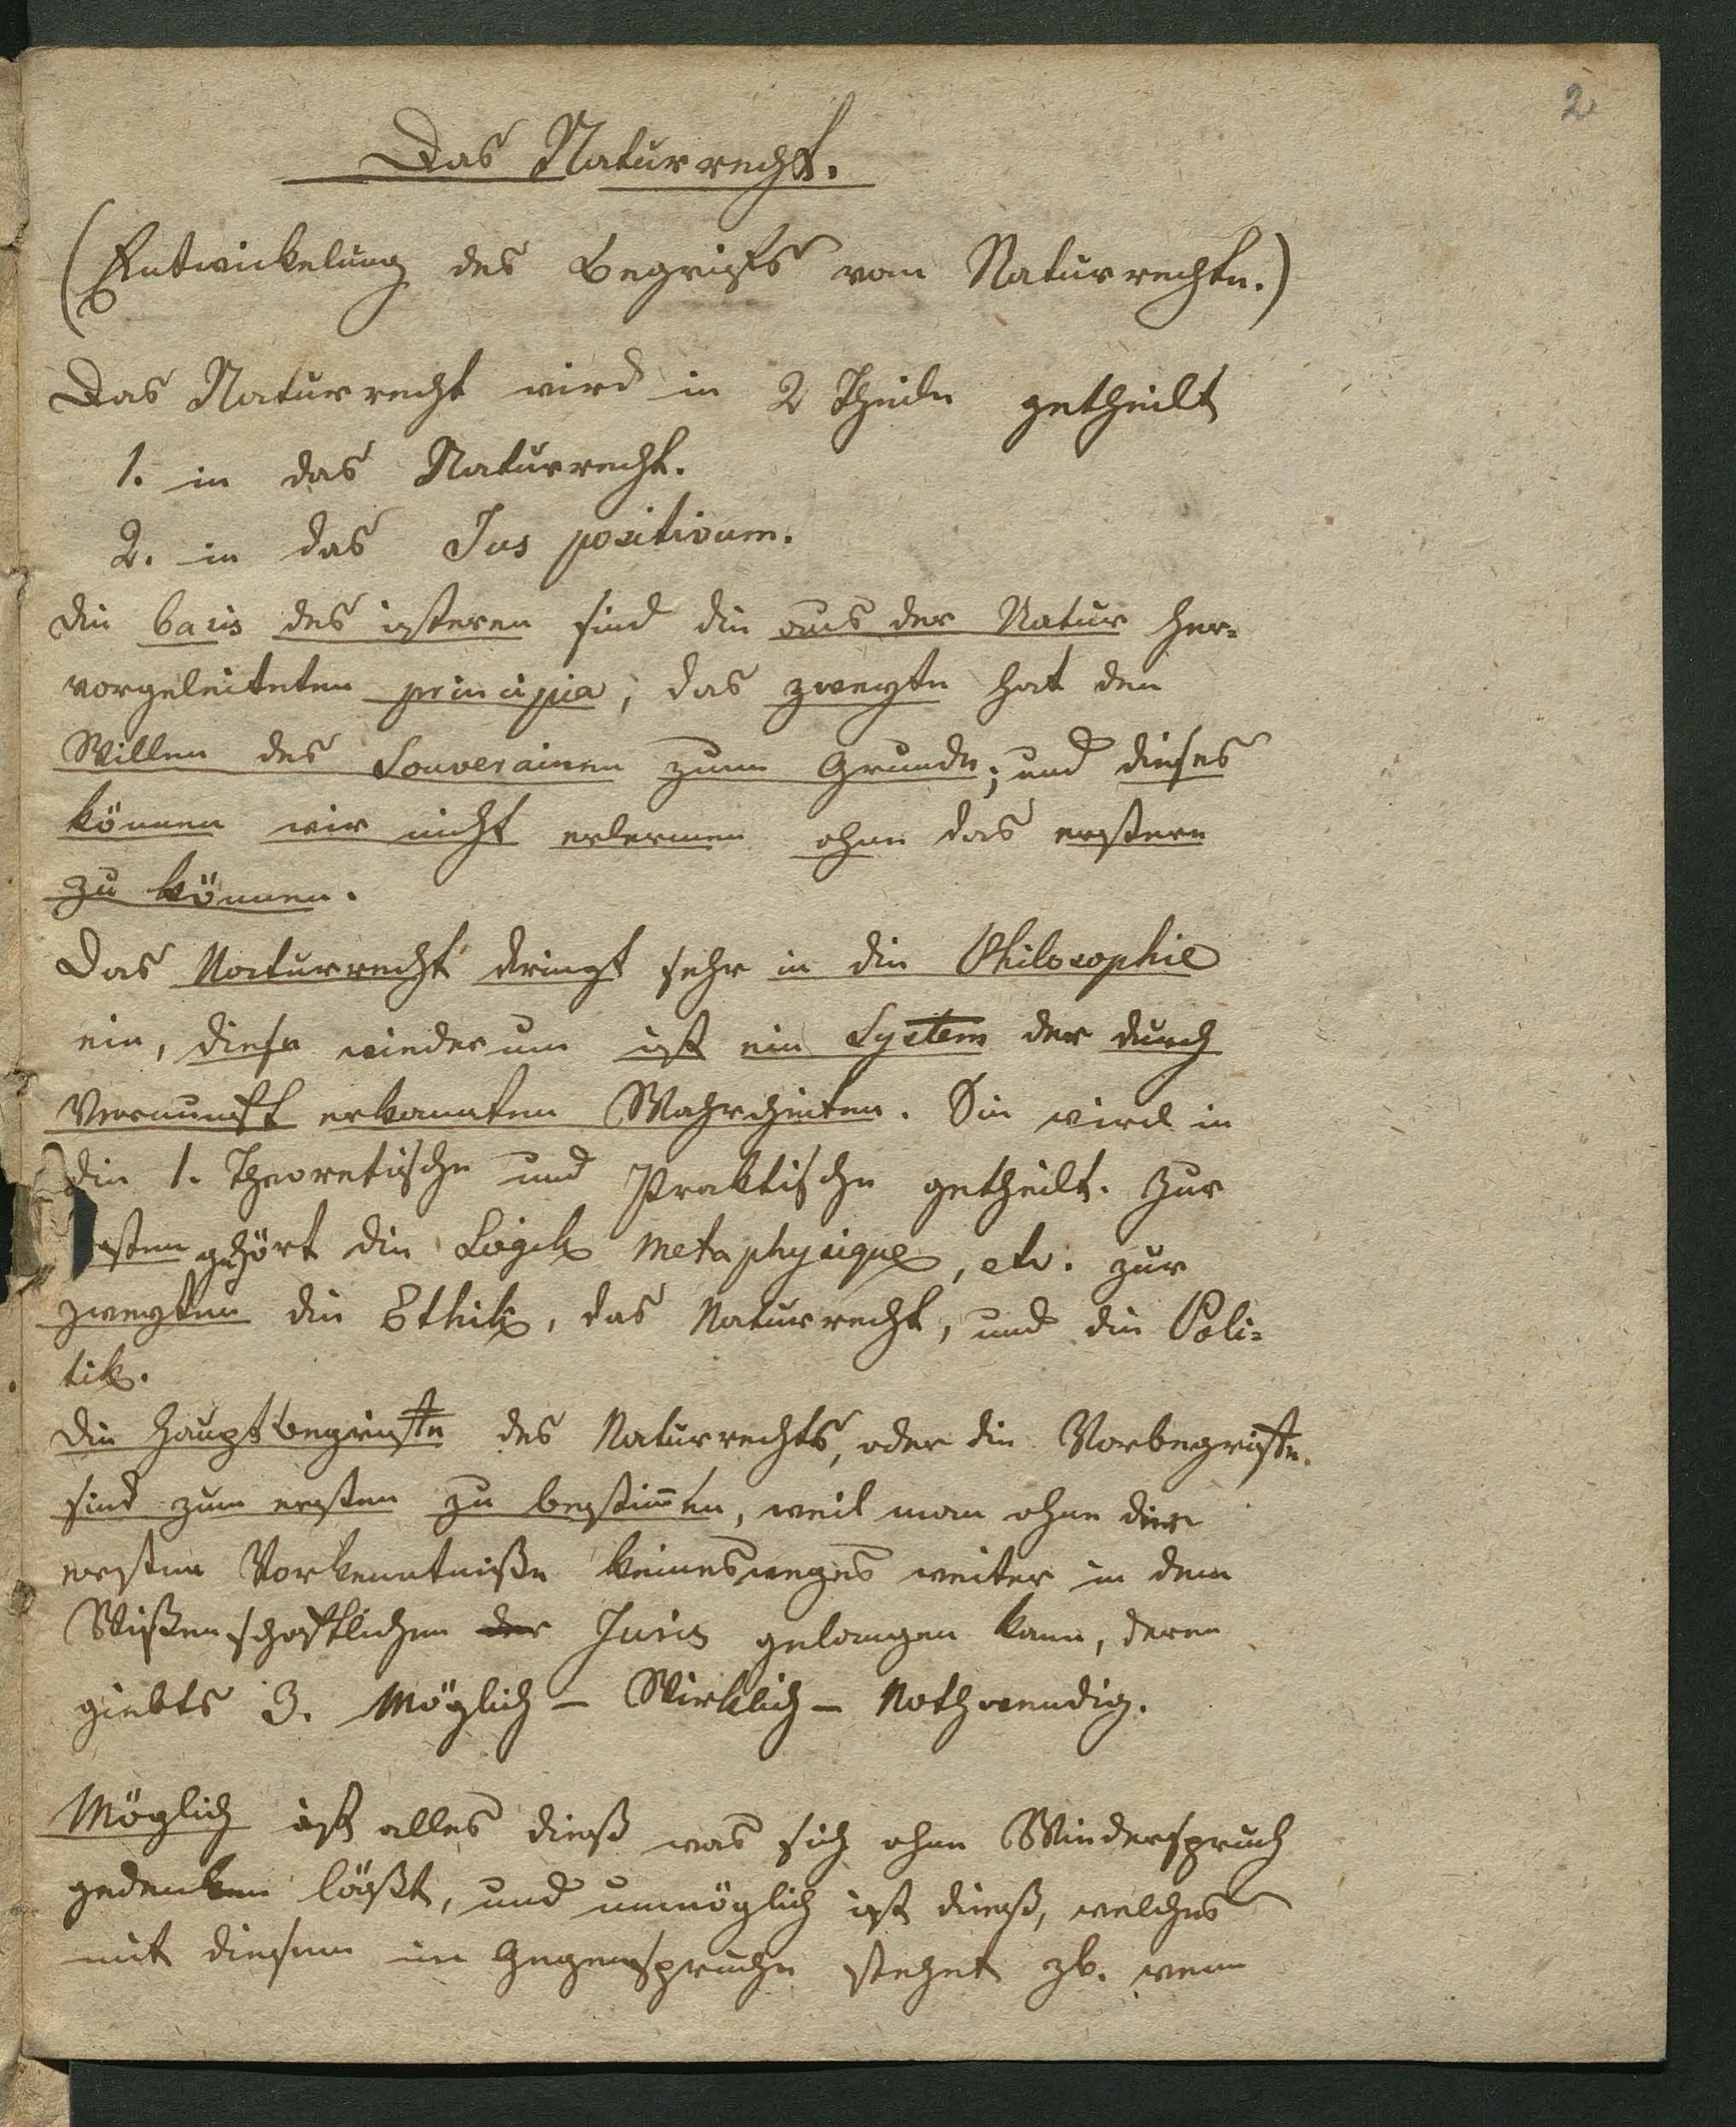 2
Das Naturrecht.
(Entwickelung des Begrifs vom Naturrechte.)
Das Naturrecht wird in 2 Theile getheilt
1. in das Naturrecht.
2. in das Jus positivum.
die basis des ersteren sind die aus der Natur her=
vorgeleiteten principia, das zweyte hat den
Willen des Souverainen zum Grunde; und dieses
können wir nicht erlernen ohne das erstere
zu können.
Das Naturrecht dringt sehr in die Philosophie
ein, diese wiederum ist ein System der durch
Vernunft erkannten Wahrheiten. Sie wird in
die 1. Theoretische und Praktische getheilt. Zur
ersten gehört die Logik Metaphysique, etc. zur
zweyten die Ethik, das Naturrecht, und die Poli=
tik.
Die Hauptbegriffe des Naturrechts, oder die Vorbegriffe
sind zum ersten zu bestim̄en, weil man ohne diese
ersten Vorkenntniße keinesweges weiter in dem
Wißenschaftlichen der Juris gelangen kann, deren
giebts 3. Möglich – Wirklich – Nothwendig.
Möglich ist alles dieß was sich ohne Wiederspruch
gedenken läßt, und unmöglich ist dieß, welches
mit diesem im Gegenspruche stehet zb. wenn